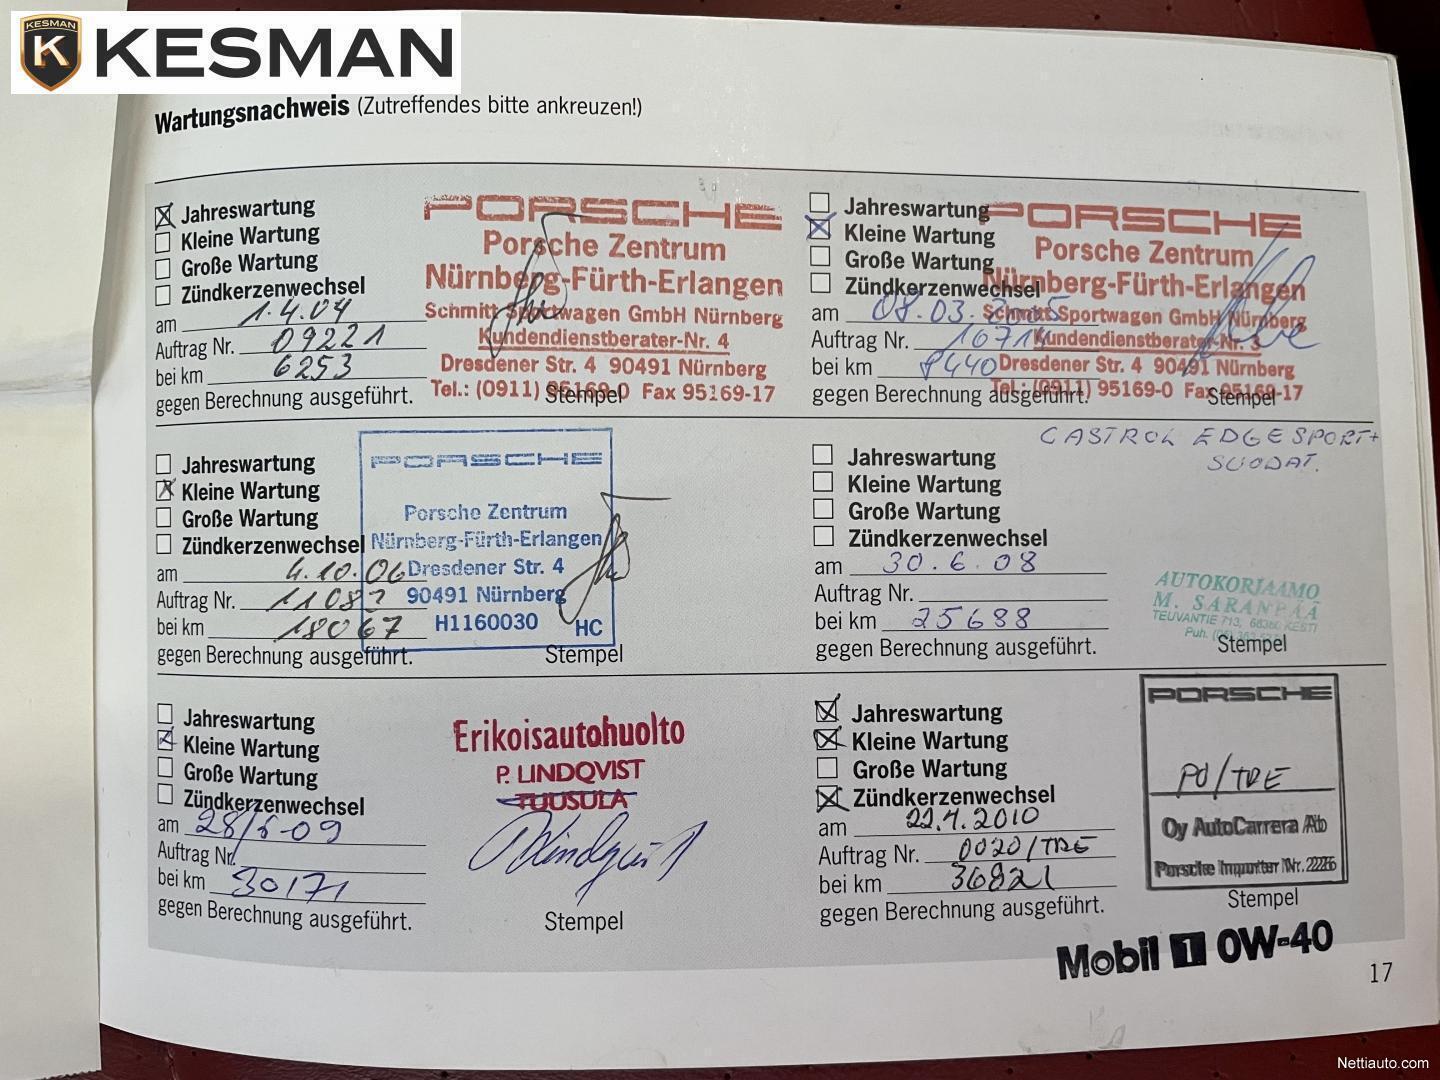 KESMAN
Wartungsnachweis (Zutreffendes bitte ankreuzen!)
Jahreswartung
Kleine Wartung
Große Wartung
Zündkerzenwechsel
am 1.4.04
Auftrag Nr. 09221
bei km 6253
gegen Berechnung ausgeführt.
PORSCHE
Porsche Zentrum
Nürnberg-Fürth-Erlangen
Schmitt Sportwagen GmbH Nürnberg
Kundendienstberater-Nr. 4
Dresdener Str. 4 90491 Nürnberg
Tel.: (0911) 95169-0 Fax 95169-17
Stempel
Jahreswartung
Kleine Wartung
Große Wartung
Zündkerzenwechsel
am 08.03.2005
Auftrag Nr.
bei km 8440
gegen Berechnung ausgeführt.
PORSCHE
Porsche Zentrum
Nürnberg-Fürth-Erlangen
Schmitt Sportwagen GmbH Nürnberg
Kundendienstberater-Nr. 3
Dresdener Str. 4 90491 Nürnberg
Tel.: (0911) 95169-0 Fax 95169-17
Stempel
Jahreswartung
Kleine Wartung
Große Wartung
Zündkerzenwechsel
am 4.10.06
Auftrag Nr.
bei km 18067
gegen Berechnung ausgeführt.
PORSCHE
Porsche Zentrum
Nürnberg-Fürth-Erlangen
Dresdener Str. 4
90491 Nürnberg
H1160030 HC
Stempel
CASTROL EDGE SPORT+
SUODAT.
Jahreswartung
Kleine Wartung
Große Wartung
Zündkerzenwechsel
am 30.6.08
Auftrag Nr.
bei km 25688
gegen Berechnung ausgeführt.
AUTOKORJAAMO
M. SARANPÄÄ
TEUVANTIE 713,
Puh.
Stempel
Jahreswartung
Kleine Wartung
Große Wartung
Zündkerzenwechsel
am 28/5-09
Auftrag Nr.
bei km 30171
gegen Berechnung ausgeführt.
Erikoisautohuolto
P. LINDQVIST
TUUSULA
Lindqvist
Stempel
Jahreswartung
Kleine Wartung
Große Wartung
Zündkerzenwechsel
am 22.4.2010
Auftrag Nr. 0020/TRE
bei km 36821
gegen Berechnung ausgeführt.
PORSCHE
PO/TRE
Oy AutoCarrera Ab
Porsche Importter Nr. 2226
Stempel
Mobil 1 0W-40
17
Nettiauto.com